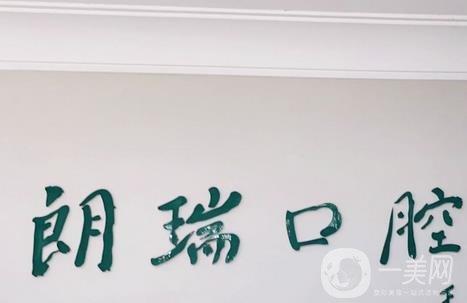 朗瑞口腔
一美网